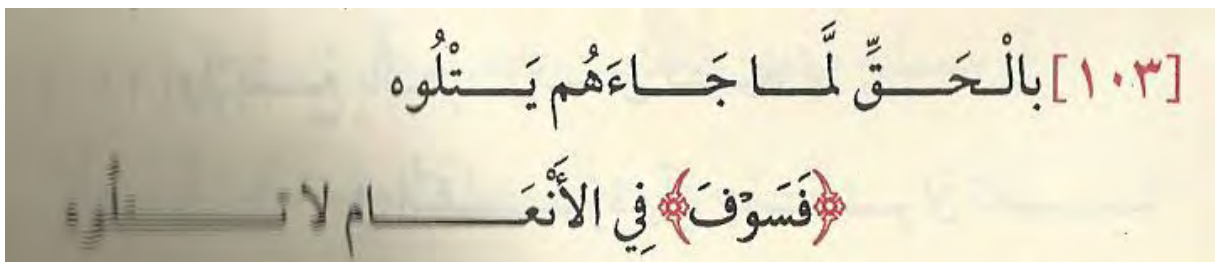 [١٠٣] بالْحَقِّ لَّمَا جَاءَهُم يَتْلُوه
﴿فَسَوْفَ﴾ فِي الأَنْعَام لا تَتْلُوه